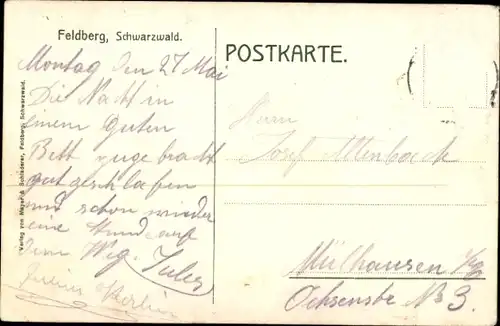 Feldberg, Schwarzwald.
POSTKARTE.
Montag den 27 Mai
Die Nacht in
einem guten
Bett zugebracht
gut geschlafen
und schon wieder
eine Stunde auf
dem Weg. Jules
Herrn
Josef Altenbach
Mülhausen
Ochsenstr No 3
Verlag von Mayer & Schladerer, Feldberg, Schwarzwald.